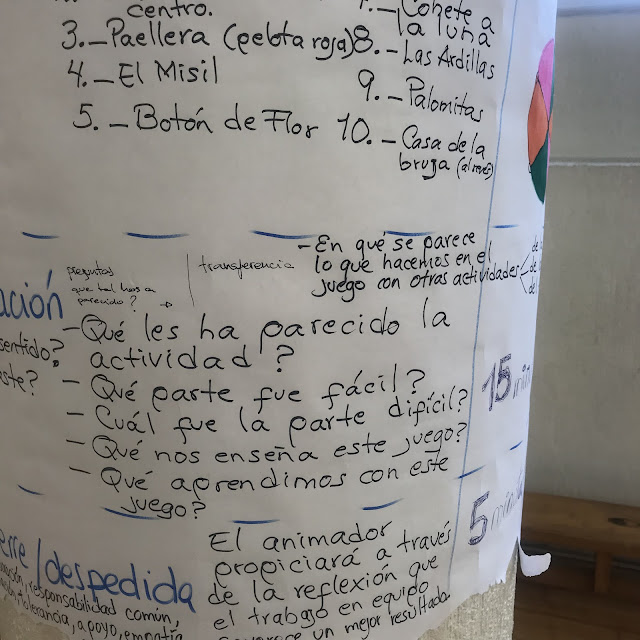 centro.
3.- Paellera (pelota roja)
4.- El Misil
5.- Botón de Flor
7.- Cohete a
la luna
8.- Las Ardillas
9.- Palomitas
10.- Casa de la
bruja (al revés)
preguntas
parecido?
transferencia
- En qué se parece
lo que hacemos en el
juego con otras actividades
de
de
ación
sentido?
este?
- Qué les ha parecido la
actividad?
- Qué parte fue fácil?
- Cuál fue la parte difícil?
- Qué nos enseña este juego?
- Qué aprendimos con este
juego?
15 min
5 minutos
erre/despedida
responsabilidad común,
tolerancia, apoyo, empatía
El animador
propiciará a través
de la reflexión que
el trabajo en equipo
un mejor resultado